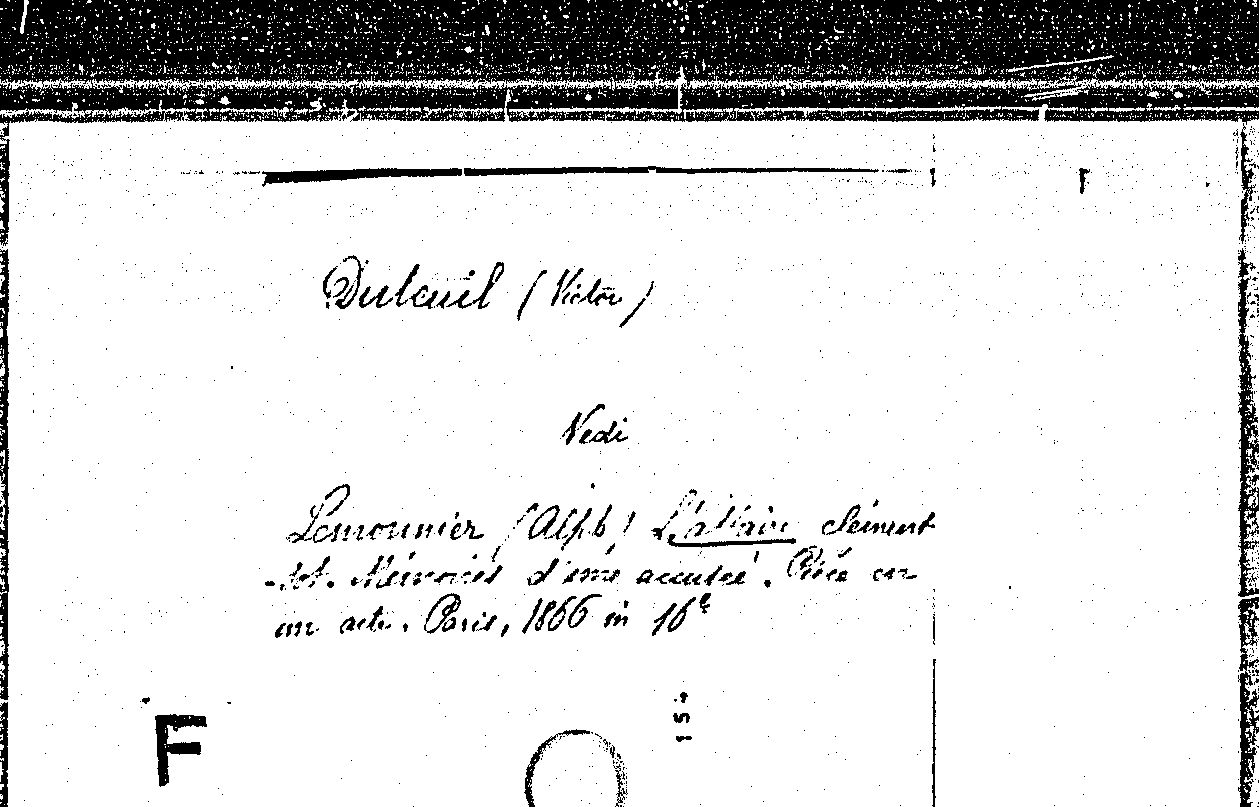 Duteuil (Victor)
Vedi
Lemonnier (Alph) L'affaire Clément
-tot. Mémoires d'une accusée. Pièce en
un acte. Paris, 1866 in 16º
F
154